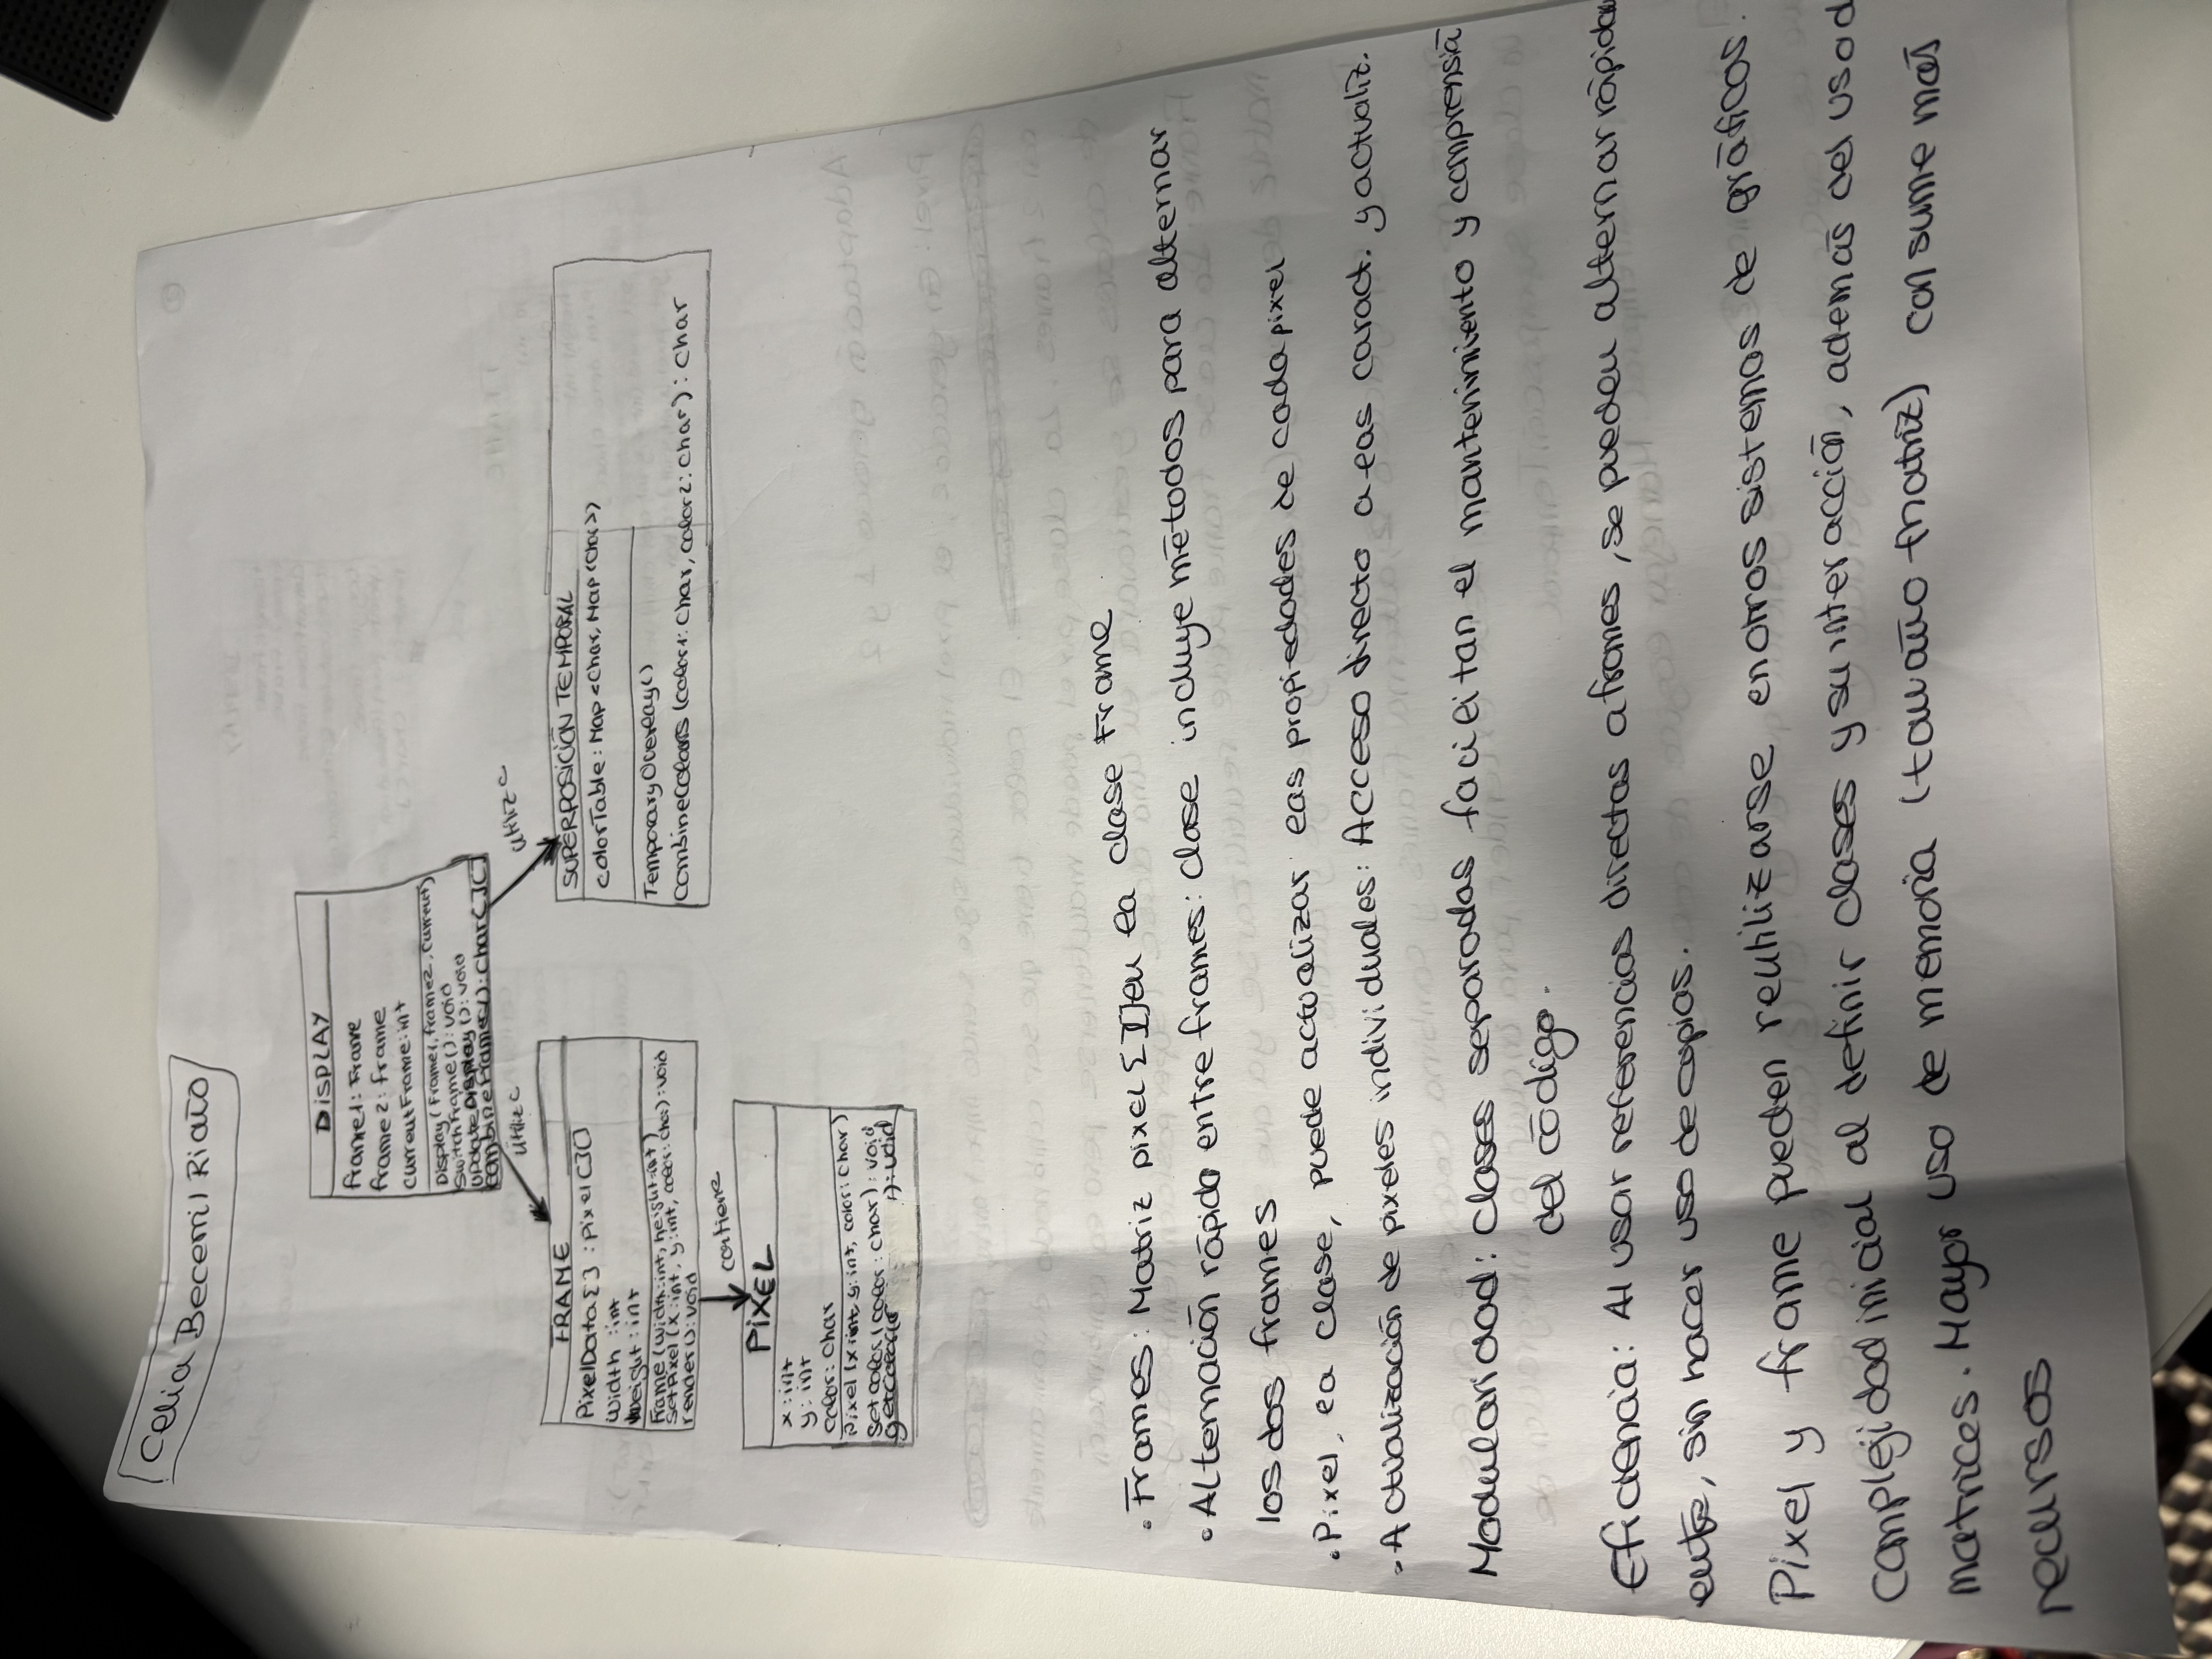 Celia Becerril Riaño
DISPLAY
frame1: Frame
frame2: frame
currentFrame: int
Display (Frame1, frame2, current)
SwitchFrame(): void
UpdateDisplay(): void
combineFrames(): char[][]
utiliza
utiliza
FRAME
PixelData[] : pixel[][]
width : int
weight : int
Frame (width: int, height: int)
SetPixel (x: int, y: int, color: char): void
render(): void
SUPERPOSICIÓN TEMPORAL
colorTable: Map<Char, Map<Char>>
TemporaryOverlay()
CombineColors (color1: char, color2: char): char
contiene
PIXEL
x: int
y: int
color: char
Pixel (x: int, y: int, color: char)
Set color (color: char): void
getColor( ): void
• Frames: Matriz pixel [][] en la clase Frame
• Alternación rápida entre frames: clase incluye métodos para alternar
los dos frames
• Pixel, la clase, puede actualizar las propiedades de cada pixel
- Actualización de pixeles individuales: Acceso directo a las caract. y actualiz.
Modularidad: clases separadas facilitan el mantenimiento y comprensió
del código.
Eficiencia: Al usar referencias directas a frames, se pueden alternar rápidam
ente, sin hacer uso de copias.
Pixel y frame pueden reutilizarse en otros sistemas de gráficos.
Complejidad inicial al definir clases y su interacción, además del uso d
matrices. Mayor uso de memoria (tamaño matriz) consume más
recursos